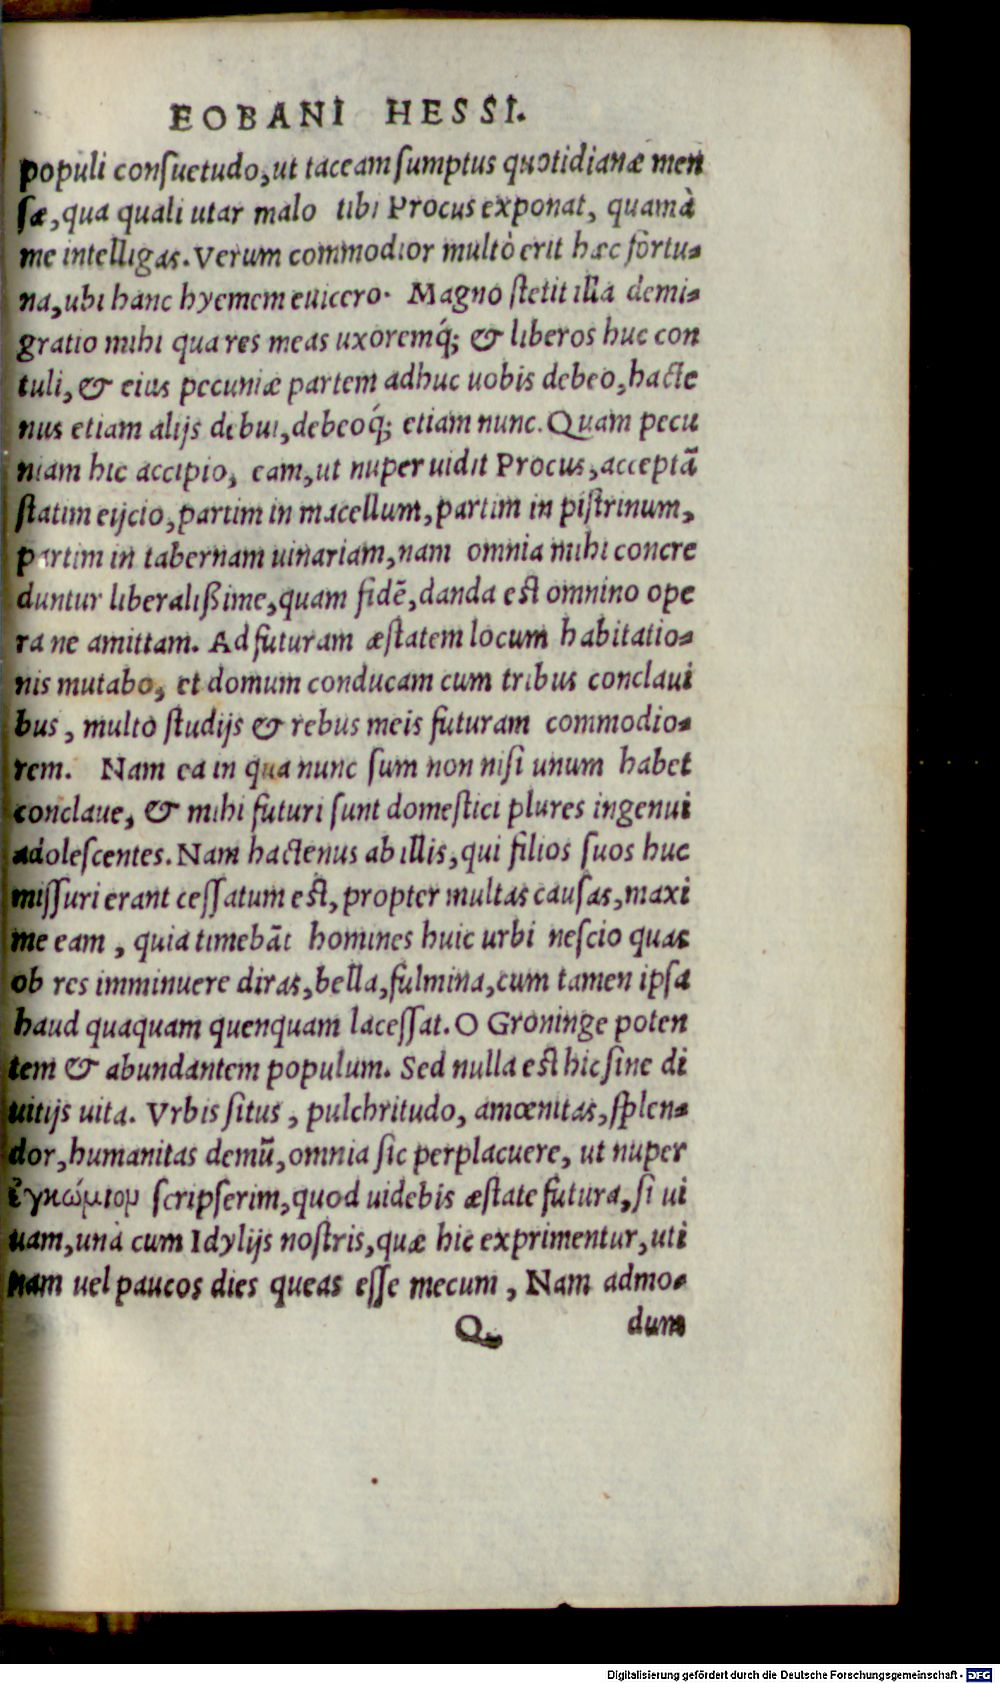 EOBANI HESSI.
populi consuetudo, ut taceam sumptus quotidianæ men
sæ, qua quali utar malo tibi Procus exponat, quam à
me intelligas. Verum commodior multò erit hæc fortu-
na, ubi hanc hyemem euicero. Magno stetit illa demi-
gratio mihi qua res meas uxoremq́; & liberos huc con
tuli, & eius pecuniæ partem adhuc uobis debeo, hacte
nus etiam alijs debui, debeoq́; etiam nunc. Quam pecu
niam hic accipio, eam, ut nuper uidit Procus, acceptã
statim eijcio, partim in macellum, partim in pistrinum,
partim in tabernam uinariam, nam omnia mihi concre
duntur liberalißime, quam fidẽ, danda est omnino ope
ra ne amittam. Ad futuram æstatem locum habitatio-
nis mutabo, et domum conducam cum tribus conclaui
bus, multò studijs & rebus meis futuram commodio-
rem. Nam ea in qua nunc sum non nisi unum habet
conclaue, & mihi futuri sunt domestici plures ingenui
adolescentes. Nam hactenus ab illis, qui filios suos huc
missuri erant cessatum est, propter multas causas, maxi
me eam, quia timebãt homines huic urbi nescio quas
ob res imminuere diras, bella, fulmina, cum tamen ipsa
haud quaquam quenquam lacessat. O Groninge poten
tem & abundantem populum. Sed nulla est hic sine di
uitijs uita. Vrbis situs, pulchritudo, amœnitas, splen-
dor, humanitas demũ, omnia sic perplacuere, ut nuper
ἐγκώμιον scripserim, quod uidebis æstate futura, si ui
uam, unà cum Idylijs nostris, quæ hic exprimentur, uti
nam uel paucos dies queas esse mecum, Nam admo-
Q dum
Digitalisierung gefördert durch die Deutsche Forschungsgemeinschaft - DFG